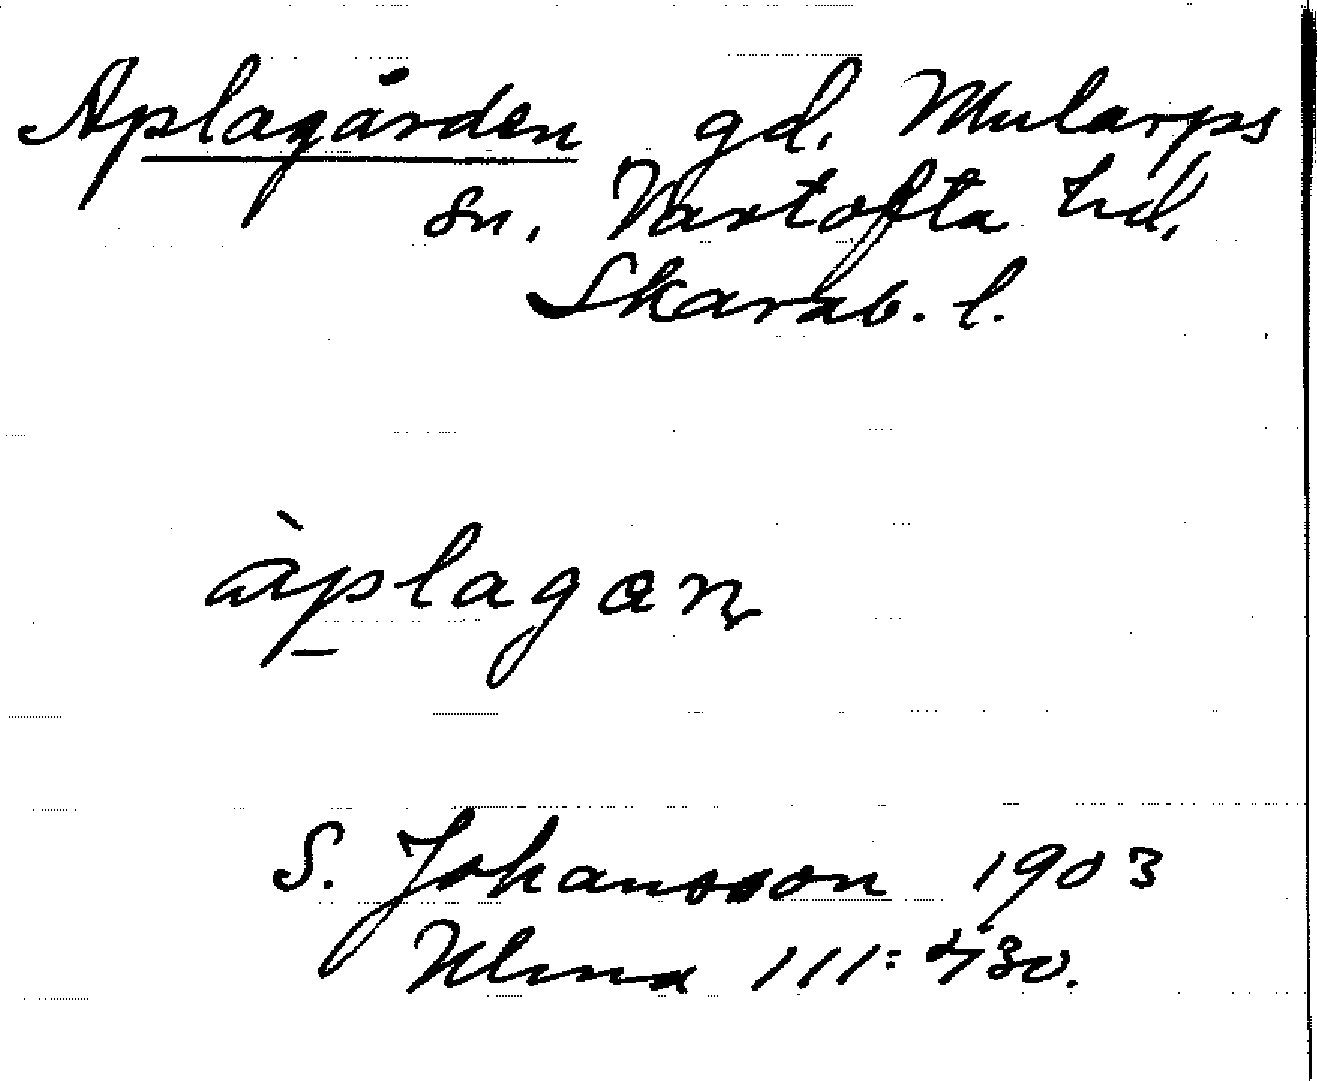 Aplagården gd. Mularps
sn. Vartofta hd.
Skarab. l.
àplagan
S. Johansson 1903
III: 430.